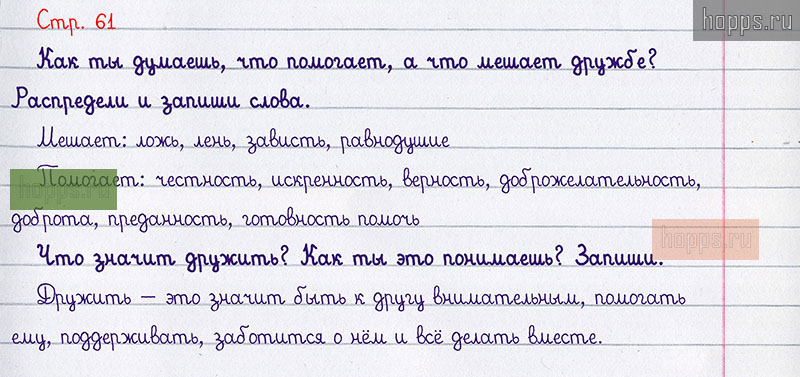 Стр. 61
hopps.ru
Как ты думаешь, что помогает, а что мешает дружбе?
Распредели и запиши слова.
Мешает: ложь, лень, зависть, равнодушие
Помогает: честность, искренность, верность, доброжелательность,
hopps.ru
доброта, преданность, готовность помочь
hopps.ru
Что значит дружить? Как ты это понимаешь? Запиши.
Дружить — это значит быть к другу внимательным, помогать
ему, поддерживать, заботится о нём и всё делать вместе.